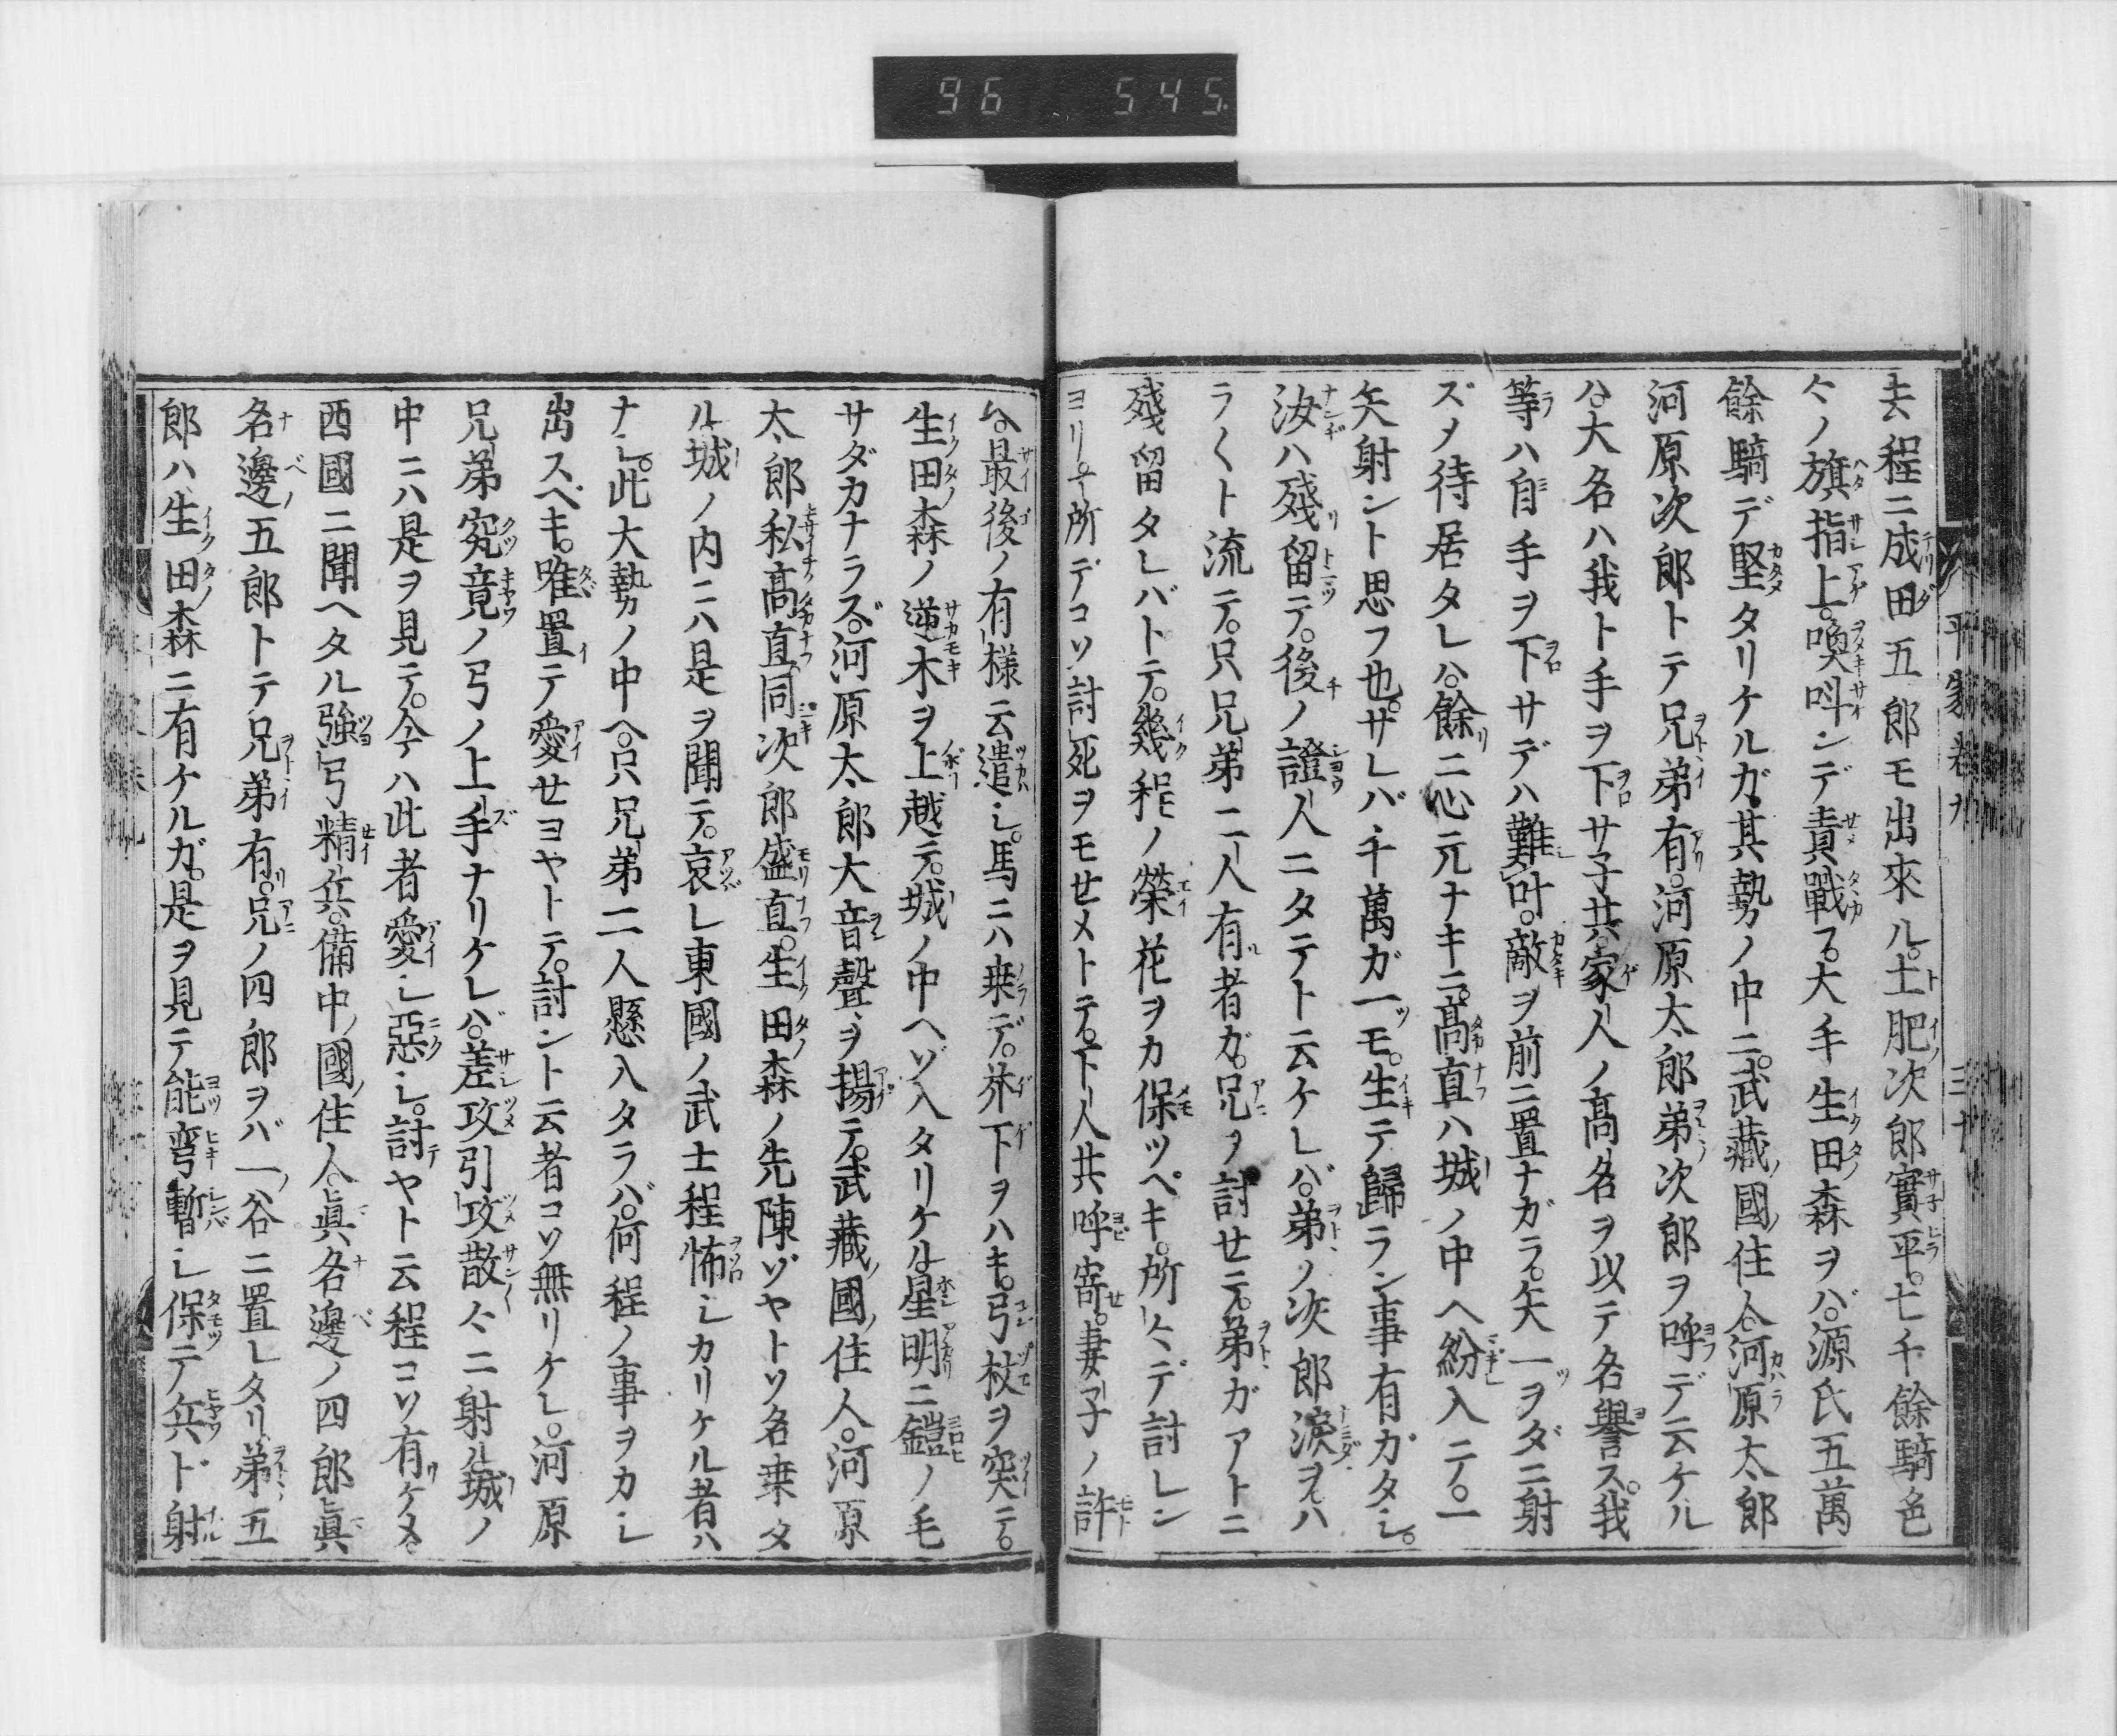 96 545
平家巻九 三十
去程ニ成田五郎モ出來ル。土肥次郎實平。七千餘騎色
々ノ旗指上。喚叫ンデ責戰フ。大手生田森ヲバ。源氏五萬
餘騎デ堅タリケルガ。其勢ノ中ニ。武藏國ノ住人。河原太郎
河原次郎トテ兄弟有。河原太郎弟次郎ヲ呼デ云ケル
ハ。大名ハ我ト手ヲ下サ子共。家人ノ高名ヲ以テ名譽ス。我
等ハ自手ヲ下サデハ難叶。敵ヲ前ニ置ナガラ。矢一ヲダニ射
ズメ待居タレハ。餘ニ心元ナキニ。高直ハ城ノ中ヘ紛入ニテ。一
矢射ント思フ也。サレバ千萬ガ一モ。生テ歸ラン事有ガタシ。
汝ハ殘留テ。後ノ證人ニタテト云ケレバ。弟ノ次郎淚ヲハ
ラ〱ト流テ。只兄弟二人有者ガ。兄ヲ討セテ。弟ガアトニ
殘留タレバトテ。幾程ノ榮花ヲカ保ツベキ。所々デ討レン
ヨリモ。一所デコソ討死ヲモセメトテ。下人共呼寄。妻子ノ許
ヘ最後ノ有樣云遣シ。馬ニハ乗デ。芥下ヲハキ。弓杖ヲ突テ。
生田森ノ逆木ヲ上越テ。城ノ中ヘゾ入タリケル。星明ニ鎧ノ毛
サダカナラズ。河原太郎大音聲ヲ揚テ。武藏國ノ住人。河原
太郎私高直同次郎盛直。生田森ノ先陳ゾヤトソ名乗タ
ル。城ノ内ニハ是ヲ聞テ。哀レ東國ノ武士程怖シカリケル者ハ
ナシ。此大勢ノ中ヘ。只兄弟二人懸入タラバ。何程ノ事ヲカシ
出スベキ。唯置テ愛セヨヤトテ。討ント云者コソ無リケレ。河原
兄弟究竟ノ弓ノ上手ナリケレバ。差攻引攻散々ニ射ル。城ノ
中ニハ是ヲ見テ。今ハ此者愛シ惡シ。討ヤト云程コソ有ケメ。
西國ニ聞ヘタル強弓精兵。備中ノ國ノ住人。眞名邊ノ四郎眞
名邊五郎トテ兄弟有。兄ノ四郎ヲバ一ノ谷ニ置レタリ。弟五
郎ハ生田森ニ有ケルガ。是ヲ見テ能彎暫シ保テ兵ド射